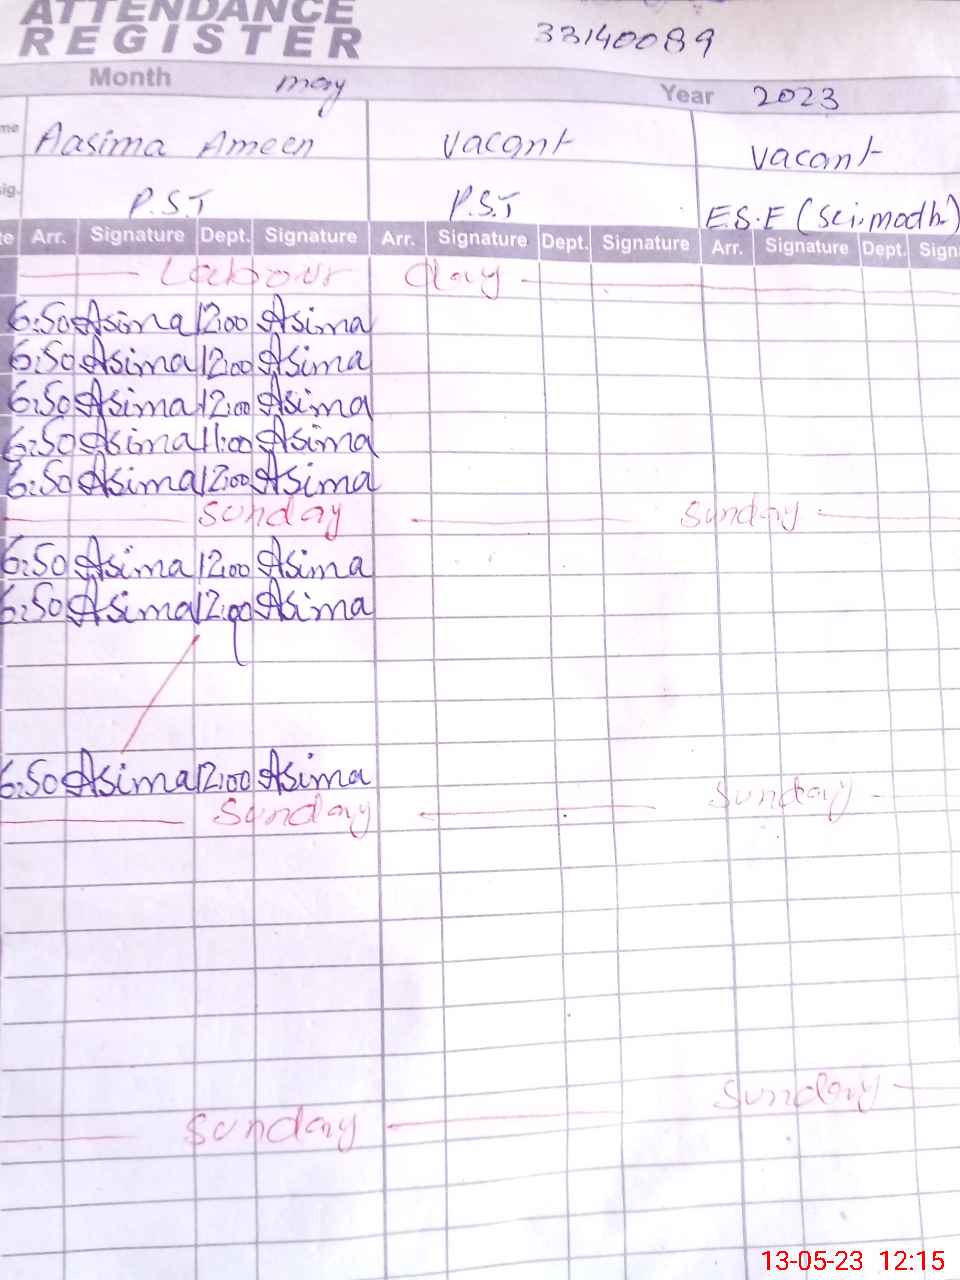 ATTENDANCE
REGISTER 33140089
Month may Year 2023
me Aasima Ameen vacant vacant
ig. P.S.T P.S.T E.S.E (sci.math)
te Arr. Signature Dept. Signature Arr. Signature Dept. Signature Arr. Signature Dept. Sign
Labour day
6:50 Asima 12:00 Asima
6:50 Asima 12:00 Asima
6:50 Asima 12:00 Asima
6:50 Asima 11:00 Asima
6:50 Asima 12:00 Asima
Sunday Sunday
6:50 Asima 12:00 Asima
6:50 Asima 12:00 Asima
6:50 Asima 12:00 Asima
Sunday Sunday
Sunday Sunday
13-05-23 12:15